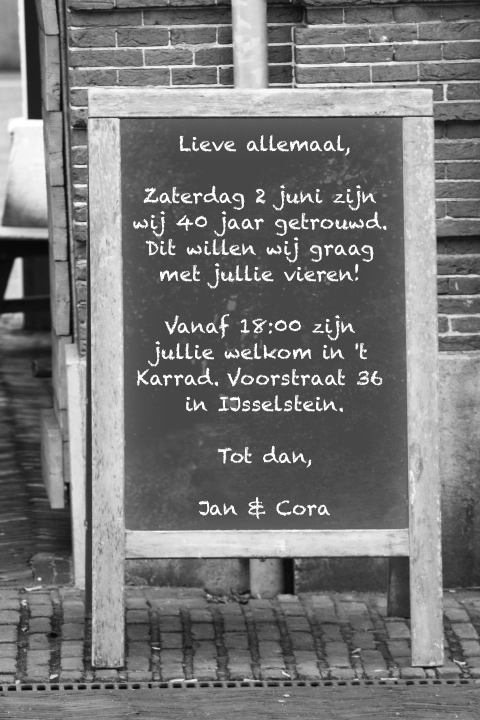 Lieve allemaal,
Zaterdag 2 juni zijn
wij 40 jaar getrouwd.
Dit willen wij graag
met jullie vieren!
Vanaf 18:00 zijn
jullie welkom in 't
Karrad. Voorstraat 36
in IJsselstein.
Tot dan,
Jan & Cora